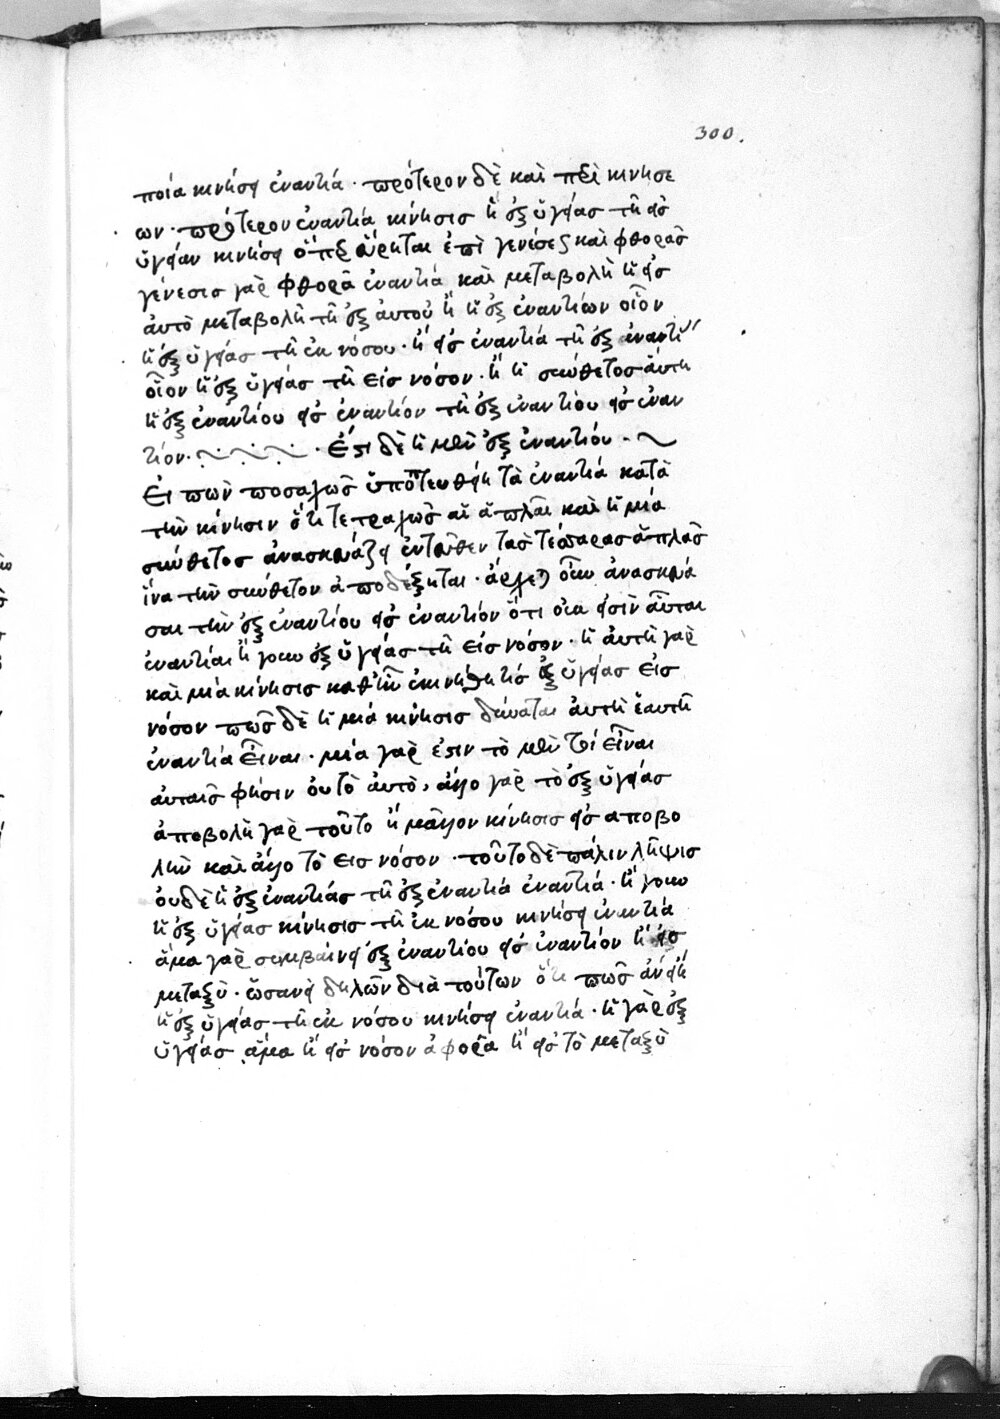 300.
ποία κινήσει ἐναντία · πρότερον δὲ καὶ περὶ κινήσε
ων · πρότερον ἐναντία κίνησις ἡ ἐξ ὑγείας τῇ εἰς
ὑγείαν κινήσει ὅπερ εἴρηται ἐπὶ γενέσεως καὶ φθορᾶς
γένεσις γὰρ φθορᾶ ἐναντία καὶ μεταβολὴ ἡ εἰς
ἀυτὸ μεταβολῆ τῆ ἐξ ἀυτοῦ ἢ ἡ ἐξ ἐναντίων οἷον
ἡ ἐξ ὑγείας τῆ ἐκ νόσου · ἢ εἰς ἐναντία τῆ ἐξ ἐναντί
οἷον ἡ ἐξ ὑγείας τῆ εἰς νόσον · ἢ ἡ σύνθετος ἅυτη
ἡ ἐξ ἐναντίου εἰς ἐναντίον τῆ ἐξ ἐναντίου εἰς ἐναν
τίον · Ἔστι δὲ ἡ μὲν ἐξ ἐναντίου ·
Εἰ πὼν ποσαχῶς ὑποπτευθείη τὰ ἐναντία κατὰ
τὴν κίνησιν ὅτι τετραχῶς αἱ ἁπλαῖ καὶ ἡ μία
σύνθετος ἀνασκευάζει ἐντεῦθεν τὰς τέσσαρας ἁπλᾶς
ἵνα τὴν σύνθετον ἀποδείξηται · ἄρχεται οὖν ἀνασκευά
σαι τὴν ἐξ ἐναντίου εἰς ἐναντίον ὅτι οὐκ εἰσὶν αὗται
ἐναντίαι ἡ γουν ἐξ ὑγείας τῆ εἰς νόσον · ἡ ἀυτὴ γὰρ
καὶ μία κίνησις καθ' ἣν ἐκινήθη τις ἐξ ὑγείας εἰς
νόσον πῶς δὲ ἡ μιά κίνησις δύναται ἀυτὴ ἑαυτῆ
ἐναντία εἶναι · μία γὰρ ἐστιν τὸ μὲν τί εἶναι
ἀυταῖς φησιν ὀυ τὸ ἀυτὸ, ἄλλο γὰρ τὸ ἐξ ὑγείας
ἀποβολὴ γὰρ τοῦτο ἢ μᾶλλον κίνησις εἰς αποβο
λὴν καὶ ἄλλο τὸ εισ νόσον · τοῦτο δὲ πάλιν λῆψις
ὀυδὲ ἡ ἐξ ἐναντίας τῆ ἐξ ἐναντία ἐναντία · ἢ γουν
ἡ ἐξ ὑγείας κίνησις τῆ ἐκ νόσου κινήσει ἐναντία
ἅμα γὰρ συμβαίνει ἐξ ἐναντίου εἰς ἐναντίον ἢ εἰς
μεταξὺ · ὡσανεὶ δηλῶν διὰ τούτων ὅτι πῶς ἂν εἴη
ἡ ἐξ ὑγείας τῆ ἐκ νόσου κινήσει ἐναντία · ἡ γὰρ ἐξ
ὑγείας ἅμα ἢ εἰς νόσον ἀφορᾶ ἢ εἰς τὸ μεταξὺ